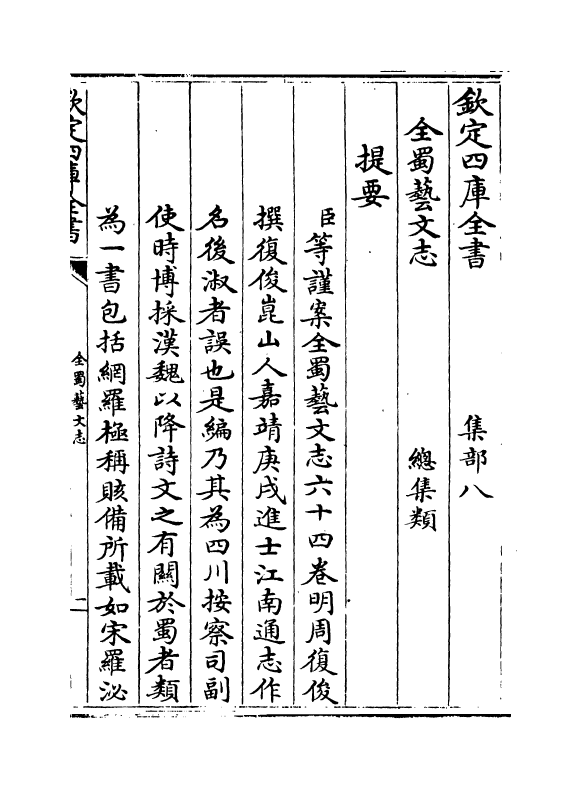 欽定四庫全書　集部八
全蜀藝文志　總集類
提要
臣等謹案全蜀藝文志六十四卷明周復俊
撰復俊崑山人嘉靖庚戌進士江南通志作
名後淑者誤也是編乃其為四川按察司副
使時博採漢魏以降詩文之有關於蜀者類
為一書包括網羅極稱賅備所載如宋羅泌
欽定四庫全書
全蜀藝文志
二